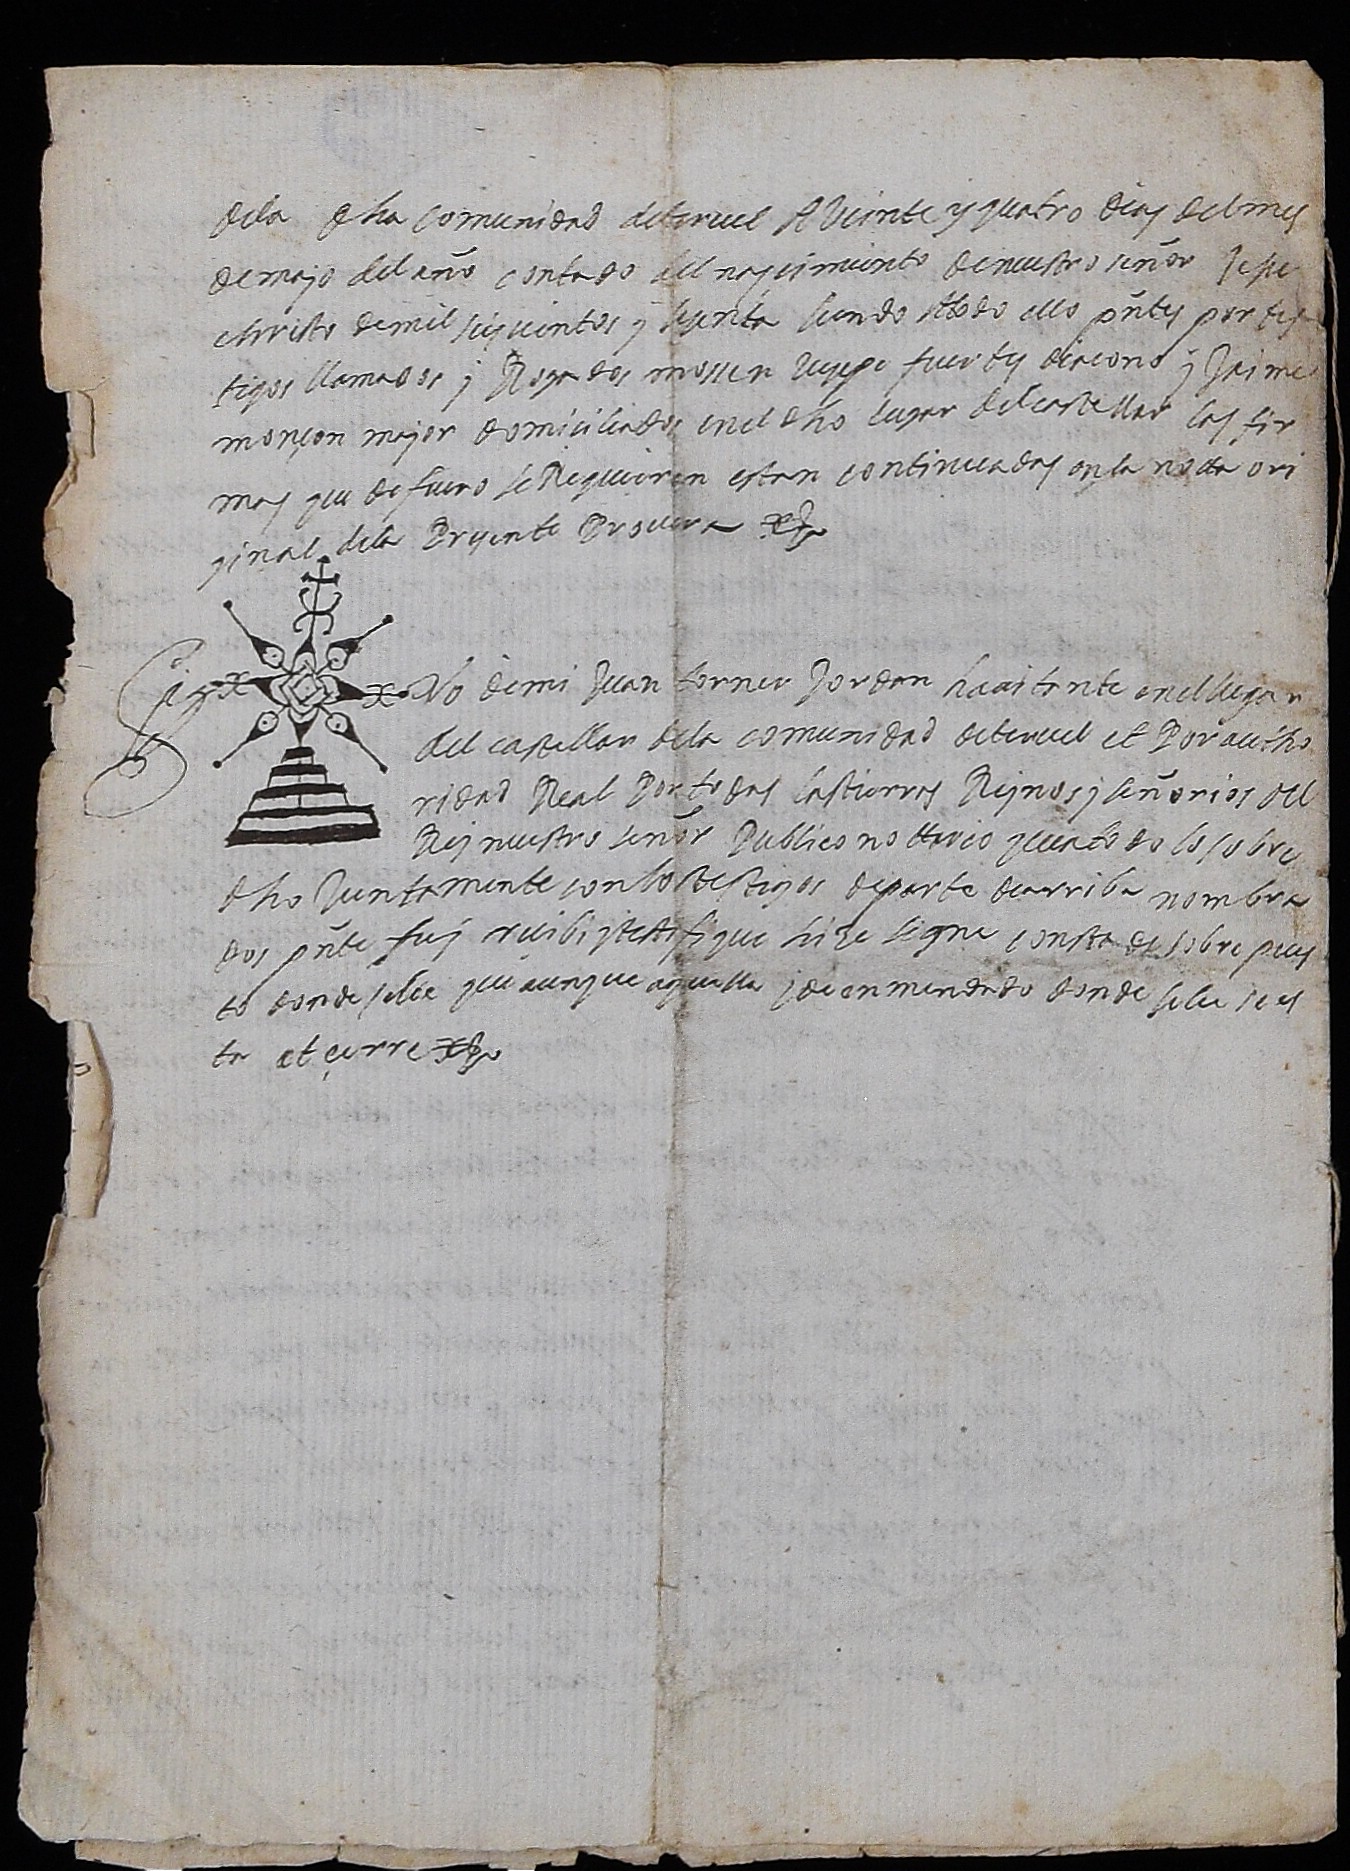 dela dha comunidad deteruel A Veinte y quatro dias del mes
de mayo del año contado del nascimiento de nuestro señor Jesu
christo de mil seyscientos y sesenta siendo a todo ello pñtes por tes
tigos llamados y Rogados mossen fuertes diacono y Jaime
monçon mayor domiciliados en el dho lugar del castellar las fir
mas que de fuero se Requieren estan continuadas en la notta ori
ginal dela Presente Procura
Sig No de mi Juan torner Jordan hauitante en el lugar
del castellar dela comunidad de teruel et Por autho
ridad Real Por todas las tierras Reynos y señorios del
Rey nuestro señor Publico nottario qua todo lo sobre
dho Juntamente con los testigos de parte de arriba nombra
dos pñte fuy reçibi y testifique hize signe consta de sobre pues
to donde se lee que aunque aquella y de enmendado donde se lee
ta et çerre